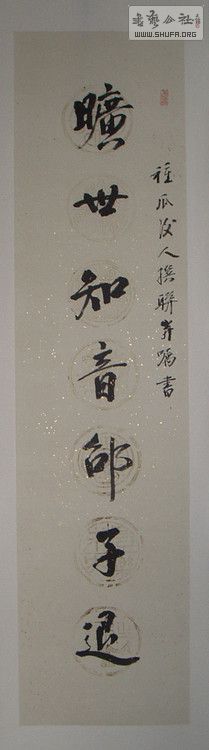 書藝公社
WWW.SHUFA.ORG
種瓜後人撰聯并囑書
曠世知音邵子退